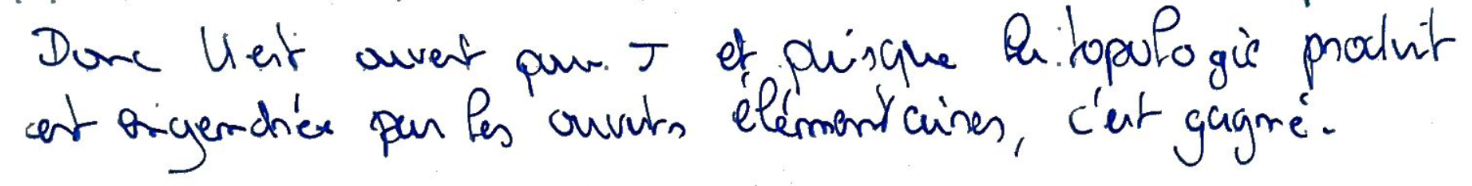 Donc U est ouvert pour T et puisque la topologie produit
est engendrée par les ouverts élémentaires, c'est gagné.